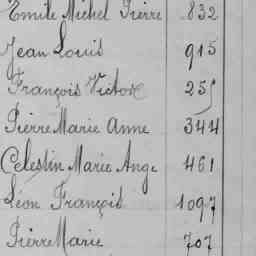 Emile Michel Pierre 832
Jean Louis 915
François Victor 255
Pierre Marie Anne 344
Celestin Marie Ange 461
Léon François 1097
Pierre Marie 707